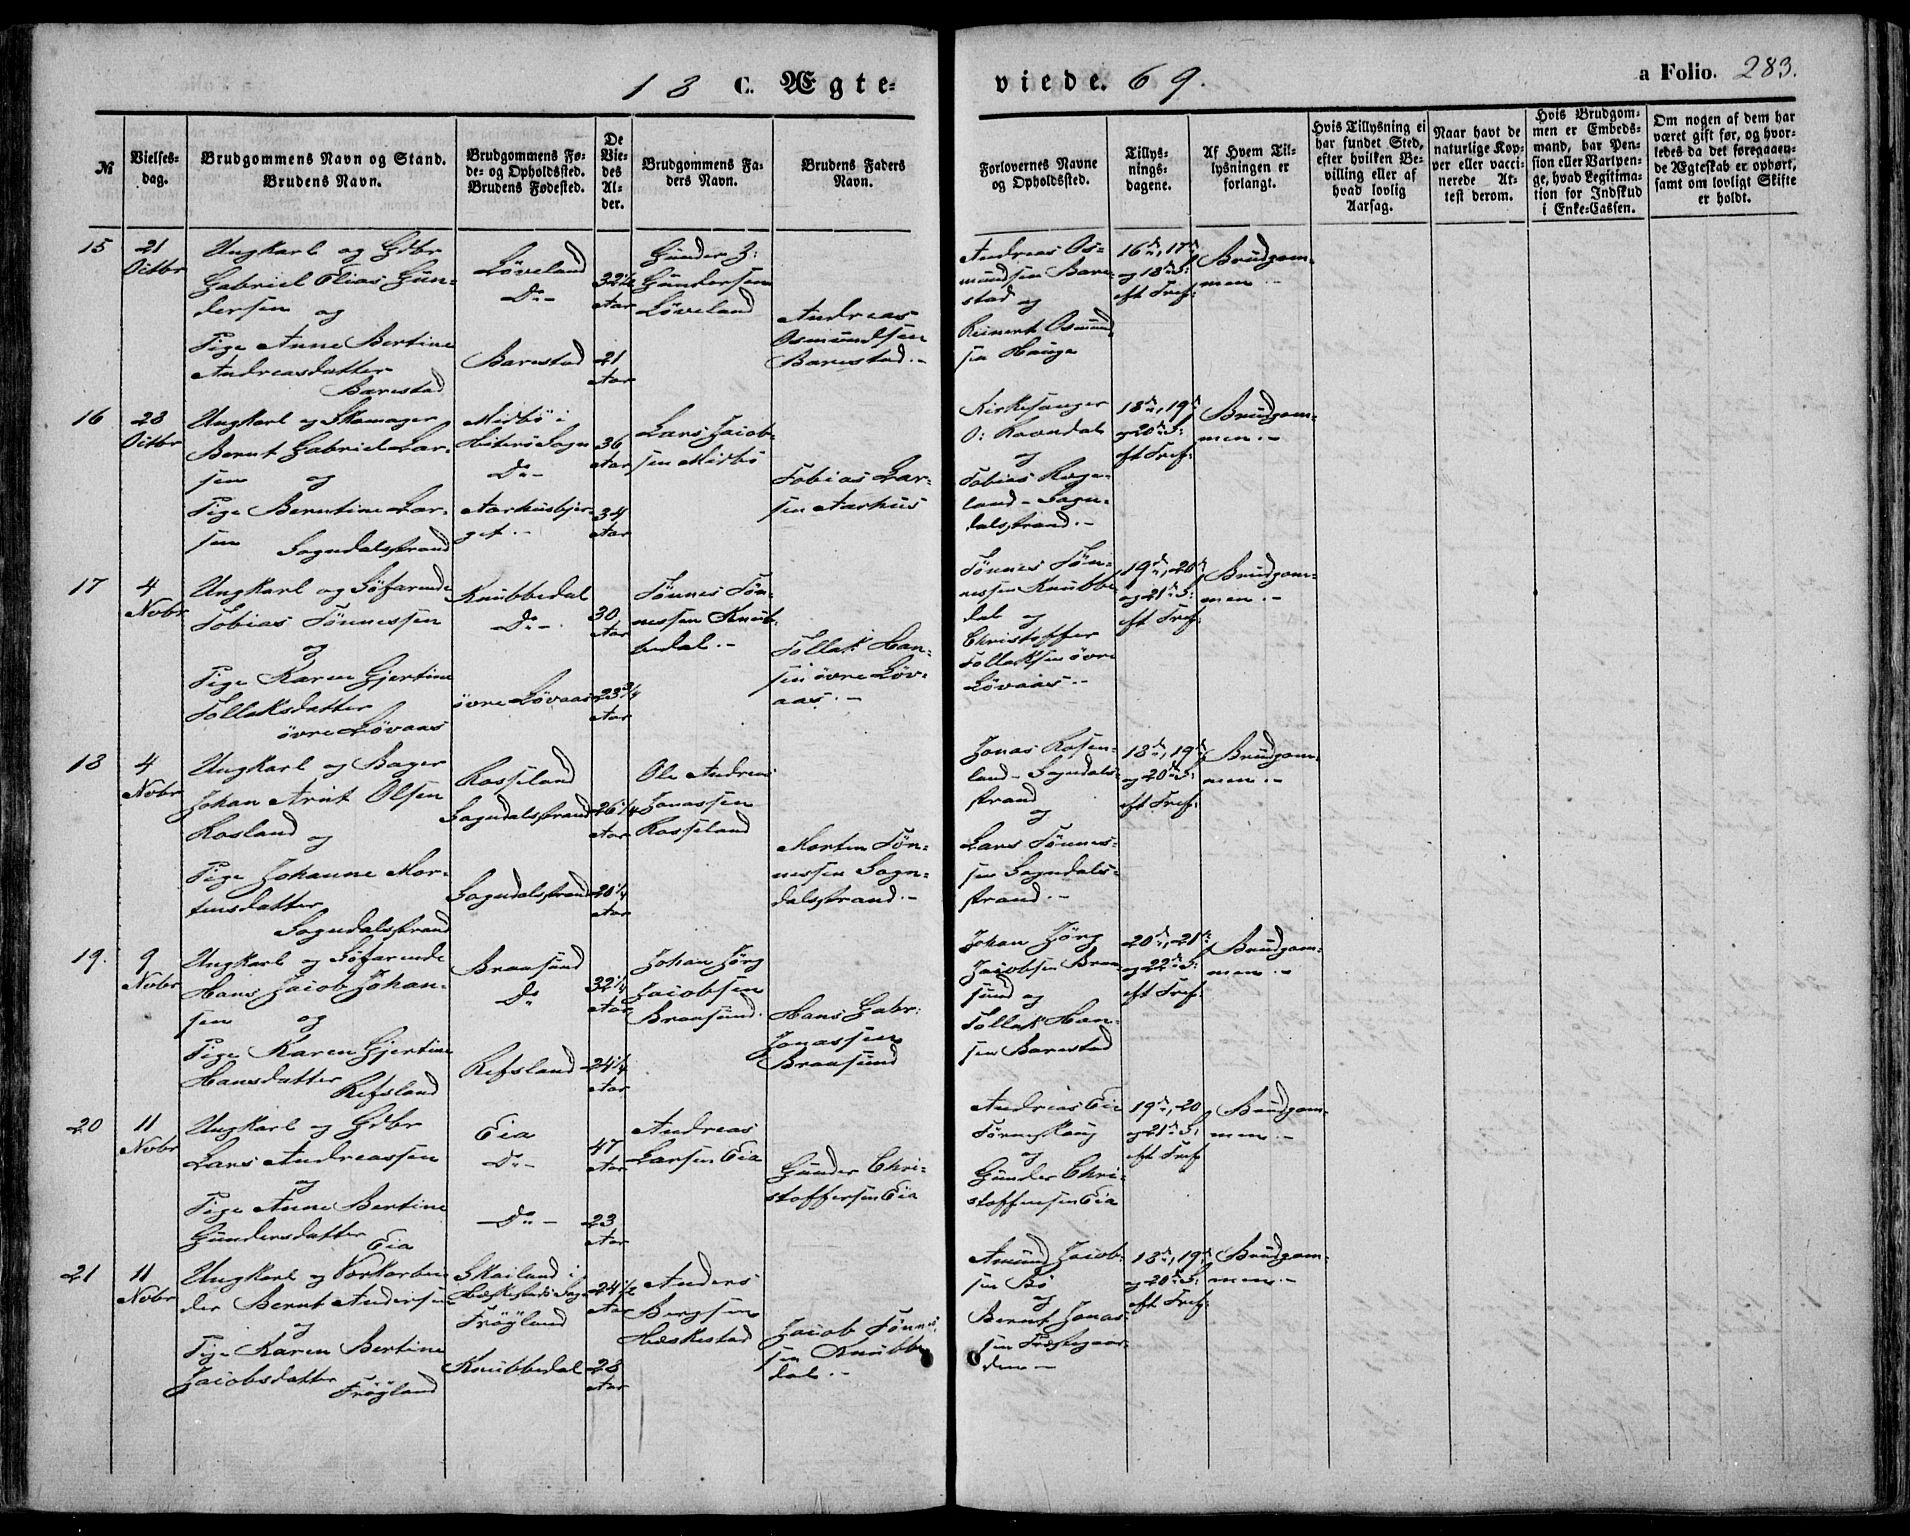 18 C. Ægte- viede. 69. a Folio. 283.
№
Vielses-
dag.
Brudgommens Navn og Stand.
Brudens Navn.
Brudgommens Fø-
de- og Opholdssted.
Brudens Fødested.
De
Vie-
des
Al-
der.
Brudgommens Fa-
ders Navn.
Brudens Faders
Navn.
Forlovernes Navne
og Opholdssted.
Tillys-
nings-
dagene.
Af Hvem Til-
lysningen er
forlangt.
Hvis Tillysning ei
har fundet Sted,
efter hvilken Be-
villing eller af
hvad lovlig
Aarsag.
Naar havt de
naturlige Kop-
per eller vacci-
nerede At-
test derom.
Hvis Brudgom-
men er Embeds-
mand, har Pen-
sion eller Vartpen-
ge, hvad Legitima-
tion for Indskud
i Enke-Cassen.
Om nogen af dem har
været gift før, og hvor-
ledes da det foregaaen-
de Ægteskab er ophørt,
samt om lovligt Skifte
er holdt.
15
21
Octbr
Ungkarl og Gdbr
Gabriel Elias Gun-
dersen og
Pige Anne Bertine
Andreasdatter
Barestad
Løveland
Do -
Barestad
32½
Aar
21
Aar
Gunder G:
Gundersen
Løveland
Andreas
Osmundsen
Barestad.-
Andreas Os-
mundsen Bare-
stad og
Reinert Osmund-
sen Hauge
16de, 17de
og 18de S:
eft Tref:
Brudgom-
men.-
16
28
Octbr
Ungkarl og Skomager
Bernt Gabriel Lar-
sen og
Pige Berntine Lar-
sen Sogndalstrand
Midbö i
Hiterö Sogn
Do -
Aarhusbjer-
get.-
36
Aar
34
Aar
Lars Jacob-
sen Midbö
Tobias Lar-
sen Aarhus
Kirkesanger
O: Ravndal
og
Tobias Rege-
land - Sogn-
dalsstrand.-
18de, 19de
og 20de S:
eft Tref:
Brudgom-
men.-
17
4
Novbr
Ungkarl og Söfarende
Tobias Tönnessen
og
Pige Karen Gjertine
Tollaksdatter
övre Lövaas
Knubbedal
Do -
övre Lövaas
30
Aar
23¾
Aar
Tönnes Tön-
nessen Knub-
bedal.-
Tollak Han-
sen övre Löv-
aas.-
Tönnes Tön-
nessen Knubbe-
dal og
Christoffer
Tollaksen övre
Lövaas.-
19de, 20de
og 21de S:
eft Tref:
Brudgom-
men.-
18
4
Novbr
Ungkarl og Bager
Johan Arnt Olsen
Rosland og
Pige Johanne Mor-
tensdatter
Sogndalstrand
Rosseland
Sogndalstrand
Sogndalstrand
26¼
Aar
20¼
Aar
Ole Andreas
Jonassen
Rosseland
Morten Tön-
nessen Sogn-
dalsstrand.-
Jonas Rosen-
land - Sogndals-
strand
og
Lars Tönnes-
sen Sogndals-
strand.-
18de, 19de
og 20de S:
eft Tref:
Brudgom-
men.-
19.
9
Novbr
Ungkarl og Söfarende
Hans Jacob Johan-
sen og
Pige Karen Gjertine
Hansdatter
Refsland
Braasund
Do
Refsland
32¼
Aar
24¼
Aar
Johan Jörg
Jacobsen
Braasund.
Hans Gabr:
Jonassen
Braasund
Johan Jörg
Jacobsen Braa-
sund og
Tollak Han-
sen Barestad
20de, 21de
og 22de S:
eft Tref:
Brudgom-
men.-
20
11
Novbr
Ungkarl og Gdbr
Lars Andreassen
og
Pige Anne Bertine
Gundersdatter
Eia
Eia
Do -
Do -
47
Aar
23
Aar
Andreas
Larsen Eia
Gunder Chri-
stoffersen Eia
Andreas Eia
og
Gunder Chri-
stoffersen Eia
19de, 20
og 21de S:
eft Tref
Brudgom-
men.-
21
11
Novbr
Ungkarl og
Bernt Andersen
og
Pige Karen Bertine
Jacobsdatter
Fröyland
Skailand i
Fröyland
Knubbedal
24½
Aar
28
Aar
Anders
Bergsen
Heskestad
Jacob Tönnes-
sen Knubbe-
dal.-
Amund Jacob-
sen Bö
og
Bernt Jonas-
sen Præstegaar-
den -
18de, 19de
og 20de S:
eft Tref:
Brudgom-
men.-